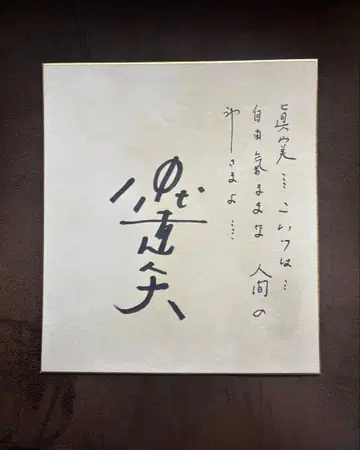 眞実…こいつは…
自由気ままな 人間の
神さまよ…